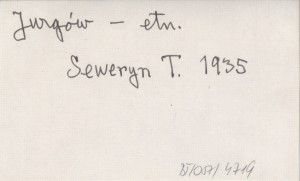 Jurgów – etn.
Seweryn T. 1935
4719